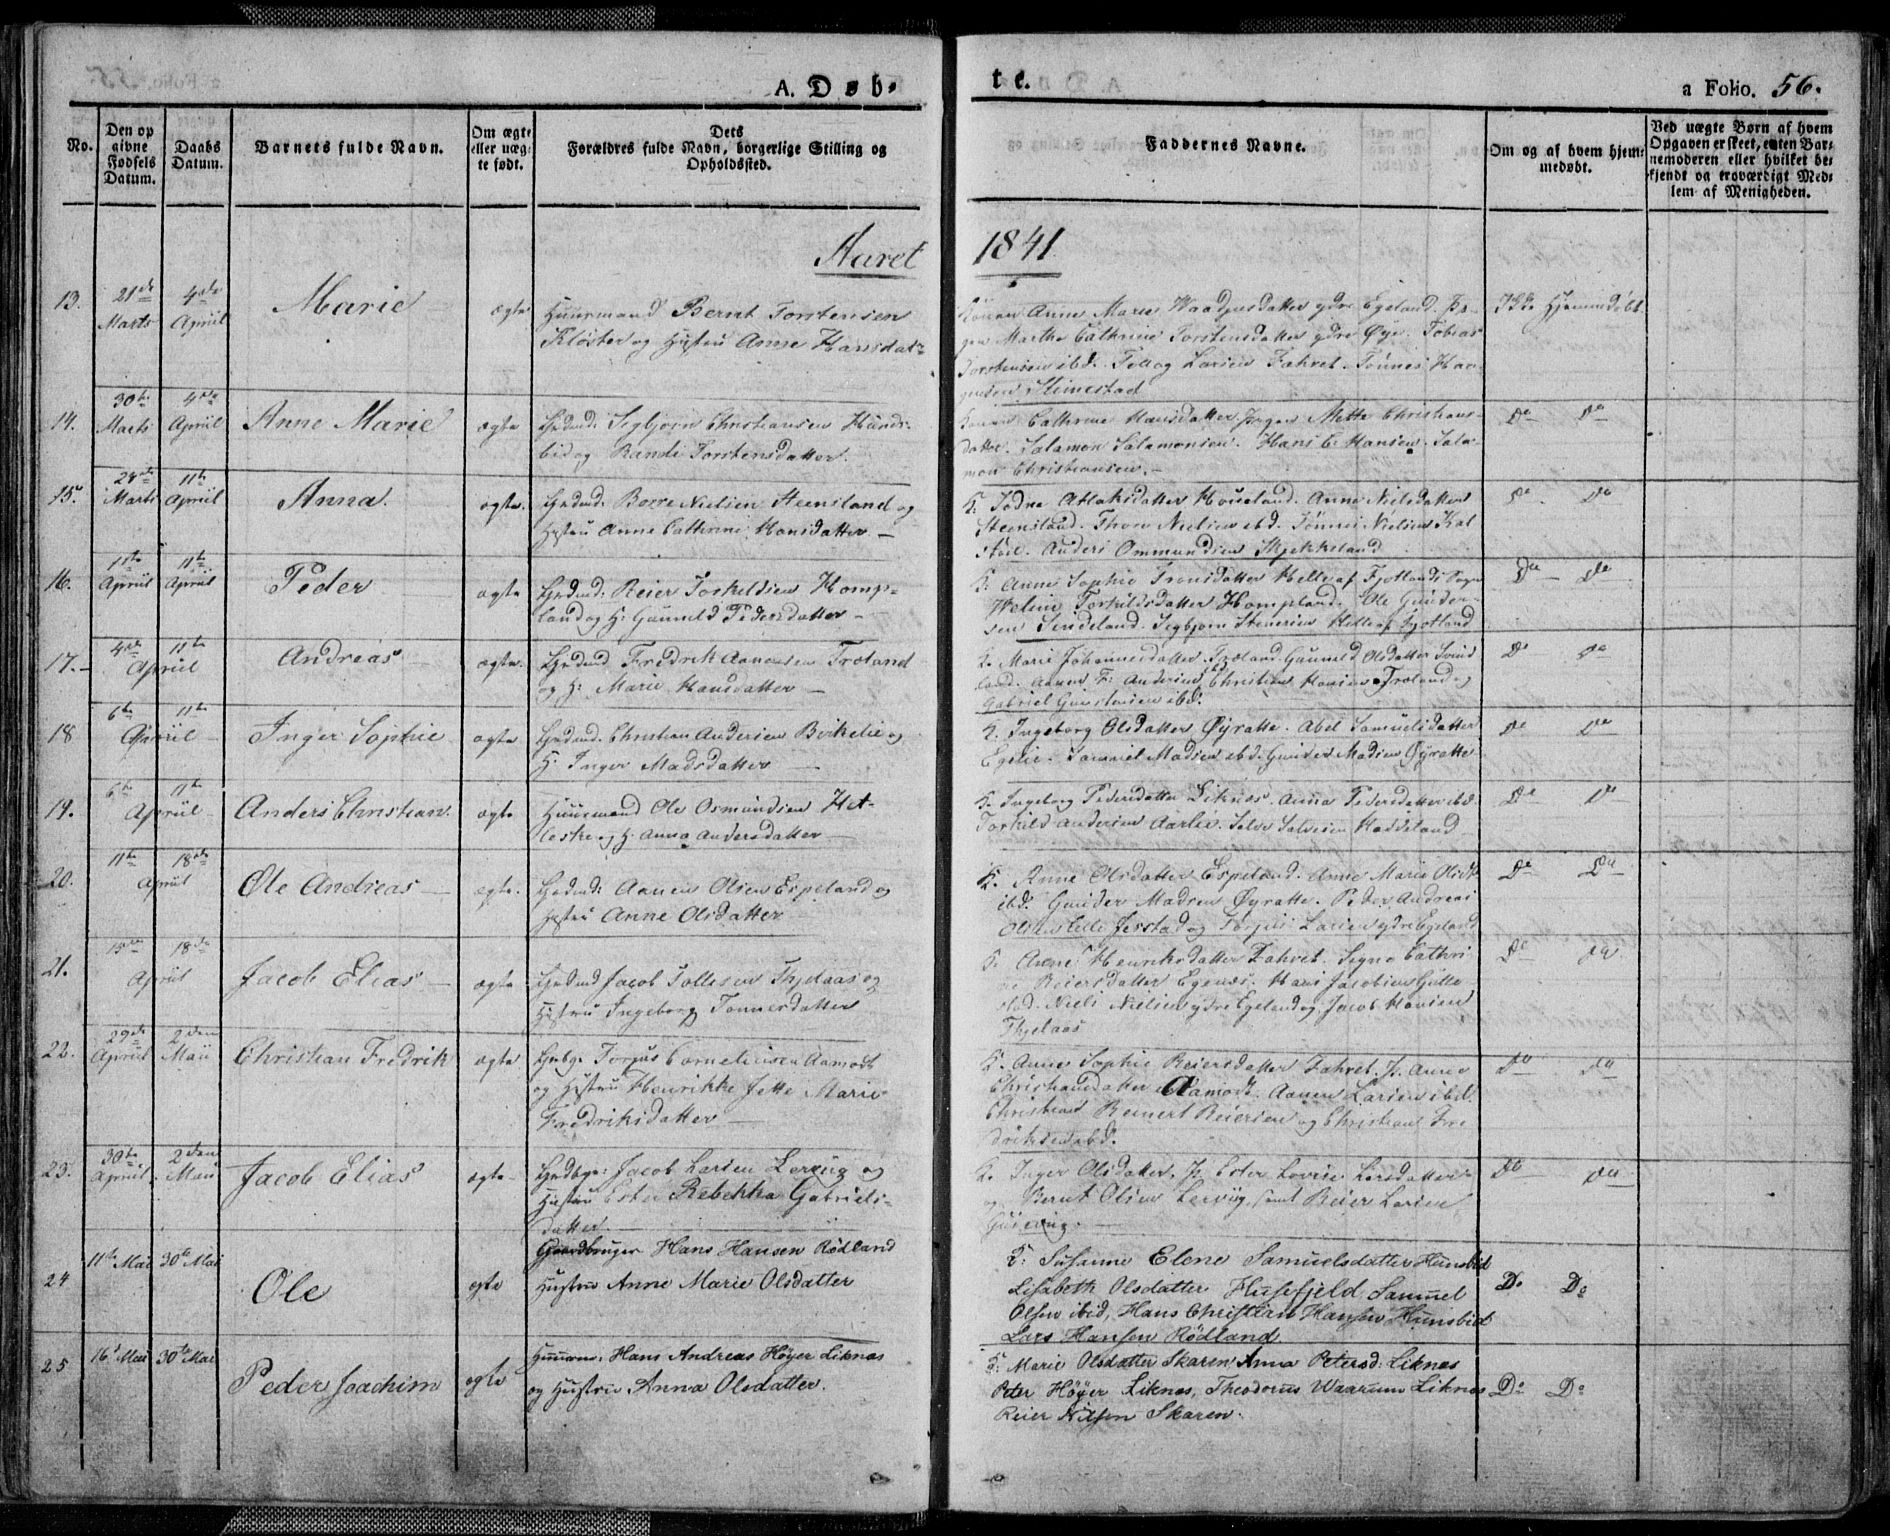 A. Døb-
te.
a Folio. 56.
No.
Den op
givne
Fødsels
Datum.
Daabs
Datum.
Barnets fulde Navn.
Om ægte
eller uæg-
te født.
Dets
Forældres fulde Navn, borgerlige Stilling og
Opholdssted.
Faddernes Navne.
Om og af hvem hjem-
medøbt.
Ved uægte Børn af hvem
Opgaven er skeet, enten Bar-
nemoderen eller hvilket be-
kjendt og troværdigt Med-
lem af Menigheden.
Aaret 1841
13. 21de Marts 4de Apriil Marie ægte
Huusmand Bernt Torstensen
Kloster og Hustru Anne Hansdat-
Konen Anne Marie Egeland. Pi-
gen Marthe Cathrine Torstensdatter ydre Øye. Tobias
Torstensen ibd. Tollag Larsen Fahret. Tønnes
Stimestad
Ikke Hjemmedøbt
14. 30te Marts 4de Apriil Anne Marie ægte
Segbjorn Christiansen Hunds-
bid og Randi Torstensdatter
Konen Cathrine Hansdatter, Pigen Mette Christians-
datter. Salamon Salamonsen. Hans C. Hansen. Sala-
mon Christiansen.
Do Do
15. 11te Marts Apriil Anna. ægte.
Borre Nielsen Steensland og
Hustru Anne Cathrine Hansdatter
K. Aslaksdatter Houeland. Anne Nielsdatter
Steensland. Thore Nielsen ibd. Tønnes Nielsen Kal-
Anders Ommundsen
Do Do
16. 1ste Apriil 11te Apriil Peder ægte
Reier Torkeldsen Homp-
land og H. Gunneld Pedersdatter
K: Anne Sophie Tronsdatter Helle af Fjotlands Sogn
Torkildsdatter Hompland. Ole Gunder-
sen Sindeland. Segbjorn Helle af Fjotland
Do Do
17. 4de 11te Apriil Andreas ægte.
Fredrik Aanensen Træland
og H: Marie Hansdatter
K. Marie Johannesdatter Træland. Gunneld Olsdatter
land. Aanen F: Andersen ibd. Christian Hansen Træland og
Gabriel ibd.
Do Do
18 6te 11te Apriil Inger Sophie ægte
Christian Andersen Birkelie og
H. Inger Madsdatter
K. Ingeborg Olsdatter Øyratte. Abel Samuelsdatter
Egelie. Samuel Madsen ibd. Gunder Madsen Øyratte
Do Do
19. 6te 11te Apriil Anders Christian ægte
Huusmand Ole Osmundsen Het-
leske og H. Anna Andersdatter
K. Ingeborg Pedersdatter Liknes. Anna Pedersdatter ibd.
Torkild Andersen Aarlie. Salve Salvesen Haddeland
Do Do
20. 11te 18de Apriil Ole Andreas ægte.
Aanen Olsen Espeland og
Hustru Anne Olsdatter
K. Anne Olsdatter Espeland. Anne Marie
ibd. Gunder Madsen Øyratte. Peder Andreas
Olsen Jerstad og Torjus Larsen ydre Egeland
Do Do
21. 15de 18de Apriil Jacob Elias ægte
Jacob Tollesen Thjelaas og
Hustru Ingeborg Tønnesdatter
K. Anne Henriksdatter Fahret. Signe Cathri-
ne Reiersdatter Egenes. Hans Jacobsen
Niels Nielsen ydre Egeland og Jacob Hansen
Thjelaas
Do Do
22. 29de Apriil 2den Maii Christian Fredrik ægte
Torjus Corneliusen Aamodt
og Hustru Henrikke Jette Marie
Fredriksdatter
K. Anne Sophie Reiersdatter Fahret. P. Anne
Christiansdatter Aamodt. Aanen Larsen ibd.
Christian Reinert Reiersen og Christian Fre-
driksen ibd.
Do Do
23. 30te Apriil 2den Maii Jacob Elias ægte
Jacob Larsen Lervig og
Hustru Ester Rebekka Gabriels-
datter.
K. Inger Olsdatter. P. Ester Lovise Larsdatter
og Bernt Olsen Lervig, samt Reier Larsen
Do Do
24 11te Mai 30te Mai Ole ægte
Gaardbruger Hans Hansen Rödland
Hustrue Anne Marie Olsdatter
K: Susanne Elene Samuelsdatter Hunsbid
Lisabeth Olsdatter Husefjeld Samuel
Olsen ibid, Hans Christian Hansen Hunsbid
Lars Hansen Rödland
Do Do
25 16de Mai 30te Mai Peder Joachim ægte
Huusm: Hans Andreas Höyer Liknes
og Hustrue Anna Olsdatter.
K: Marie Olsdatter Skaren Anna Petersd: Liknes
Peter Höyer Liknes, Theodorus Waarum Liknes
Reier Nilsen Skaren.
Do Do